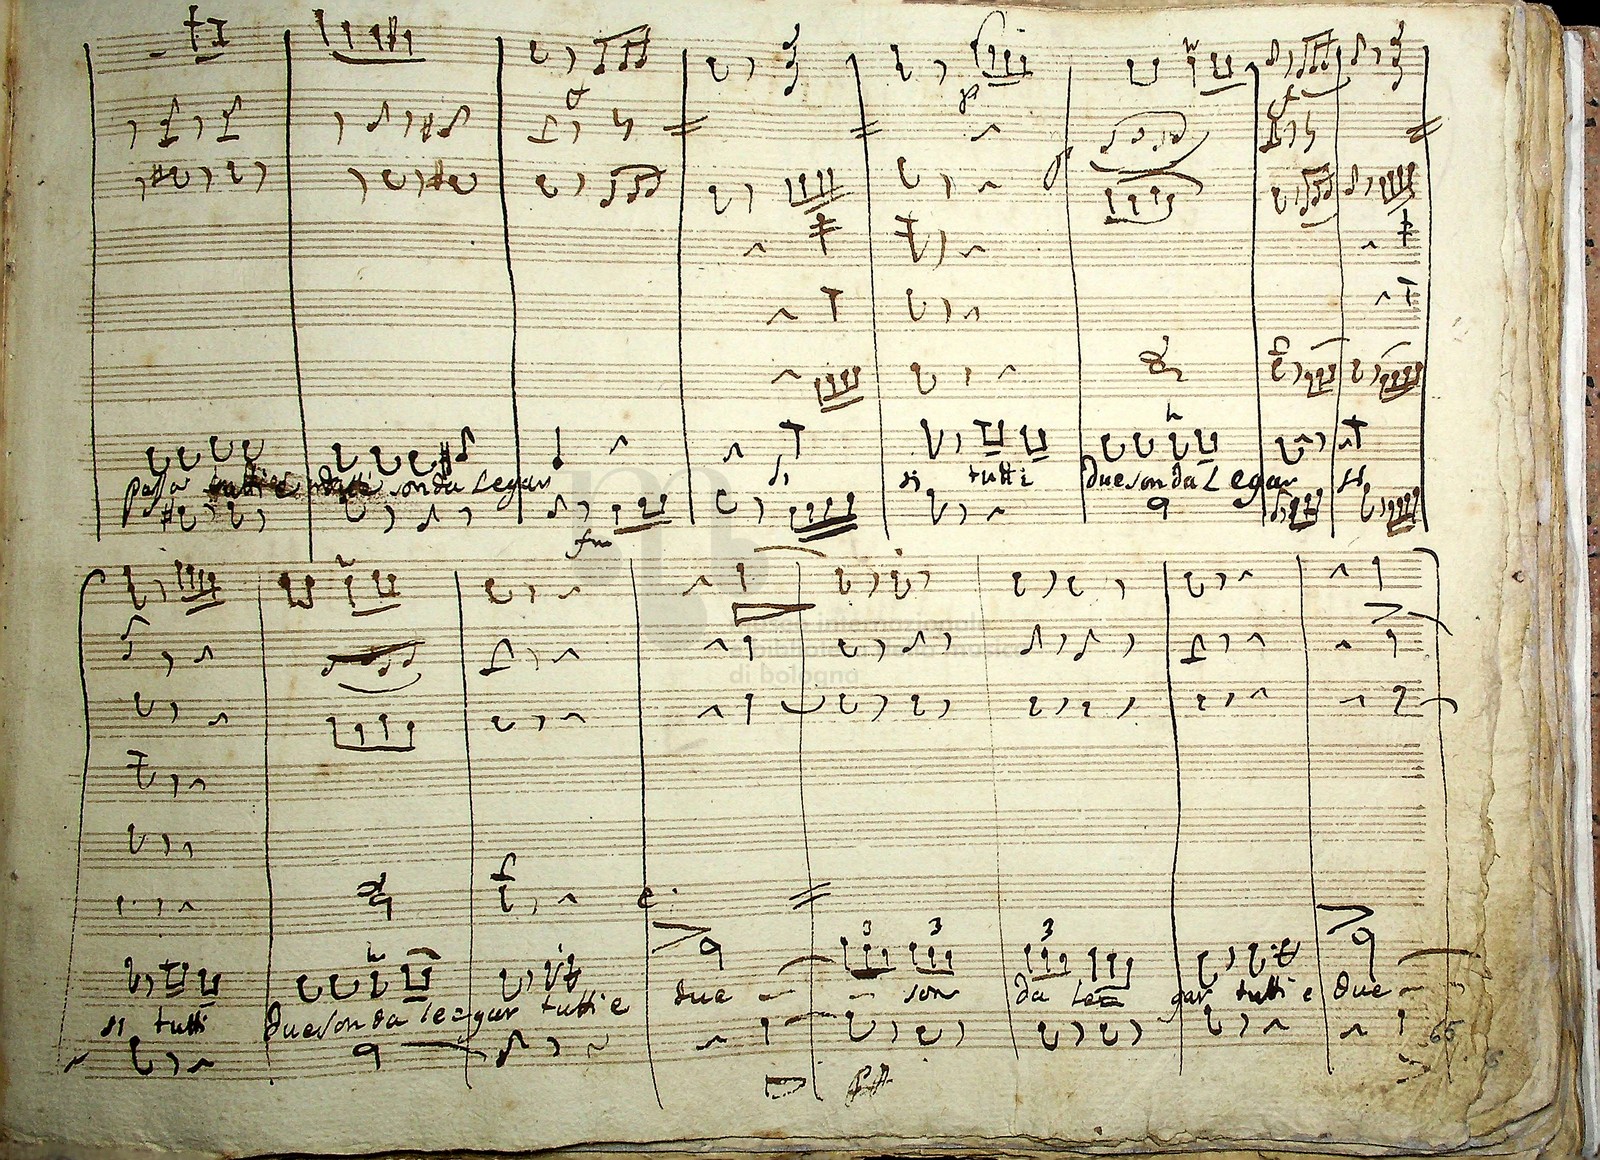 p
fm
tutti e son da Legar
si si tutti due son da Legar si
museo internazionale
e biblioteca della musica
di bologna
3 3 3
due son da Le= gar tutti e due
si tutti due son da le=gar tutti e
65